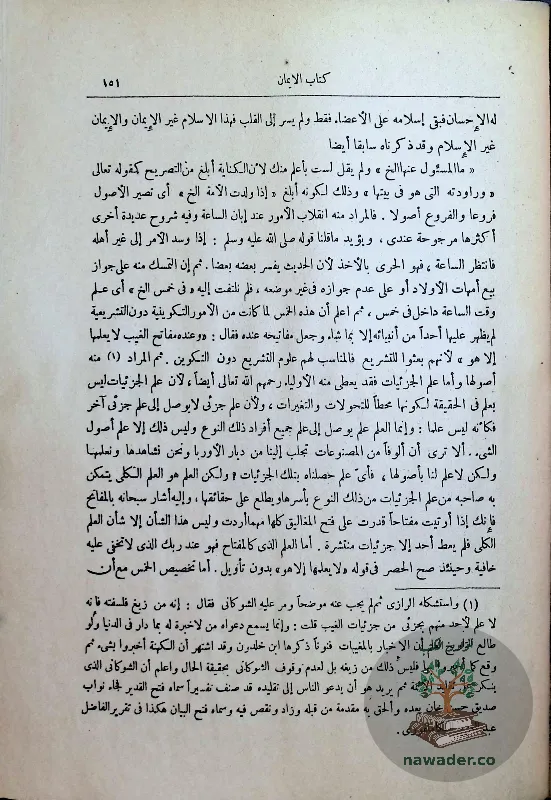 كتاب الإيمان ١٥١
له الإحسان فبقى إسلامه على الأعضاء. فقط ولم يسر إلى القلب فهذا الاسلام غير الإيمان والإيمان
غير الإسلام وقد ذكرناه سابقا أيضا
« ما المسئول عنها الخ » ولم يقل لست بأعلم منك لأن الكناية أبلغ من التصريح كقوله تعالى
« وراودته التى هو فى بيتها » وذلك لكونه أبلغ « إذا ولدت الأمة الخ » أى تصير الأصول
فروعا والفروع أصولا . فالمراد منه انقلاب الأمور عند إبان الساعة وفيه شروح عديدة أخرى
أكثرها مرجوحة عندى ، ويؤيد ماقلنا قوله صلى الله عليه وسلم : إذا وسد الأمر إلى غير أهله
فانتظر الساعة ، فهو الحرى بالأخذ لأن الحديث يفسر بعضه بعضا . ثم إن التمسك منه على جواز
بيع أمهات الأولاد أو على عدم جوازه فى غير موضعه ، فلم نلتفت إليه « فى خمس الخ » أى علم
وقت الساعة داخل فى خمس ، ثم اعلم أن هذه الخمس لما كانت من الأمور التكوينية دون التشريعية
لم يظهر عليها أحداً من أنبيائه إلا بما شاء وجعل مفاتيحه عنده فقال : «وعنده مفاتح الغيب لا يعلمها
إلا هو » لأنهم بعثوا للتشريع فالمناسب لهم علوم التشريع دون التكوين . ثم المراد (١) منه
أصولها وأما علم الجزئيات فقد يعطى منه الأولياء رحمهم الله تعالى أيضاً ، لأن علم الجزئيات ليس
بعلم فى الحقيقة لكونها محطاً للتحولات والتغيرات ، ولأن علم جزئى لا يوصل إلى علم جزئى آخر
فكأنه ليس علما : وإنما العلم علم يوصل إلى علم جميع أفراد ذلك النوع وليس ذلك إلا علم أصول
الشىء. ألا ترى أن ألوفاً من المصنوعات تجلب إلينا من ديار الأوربا ونحن نشاهدها ونعلمها
ولكن لا علم لنا بأصولها ، فأى علم حصلناه بتلك الجزئيات ؟ ولكن العلم هو العلم الكلى يتمكن
به صاحبه من علم الجزئيات من ذلك النوع بأسرها ويطلع على حقائقها ، وإليه أشار سبحانه بالمفاتح
فإنك إذا أوتيت مفتاحاً قدرت على فتح المغاليق كلها مهما أردت وليس هذا الشأن إلا شأن العلم
الكلى فلم يعط أحد إلا جزئيات منتشرة . أما العلم الذى كالمفتاح فهو عند ربك الذى لا تخفى عليه
خافية وحينئذ صح الحصر فى قوله «لا يعلمها إلا هو» بدون تأويل . أما تخصيص الخمس مع أن
(١) واستشكله الرازى ثم لم يجب عنه موضحاً ومر عليه الشوكانى فقال : إنه من زيغ فلسفته فانه
لا علم لأحد منهم بجزئى من جزئيات الغيب قلت : وإنما يسمع دعواه من لاخبرة له بما دار فى الدنيا ولو
طالع التواريخ لعلم أن الاخبار بالمغيبات فنوناً ذكرها ابن خلدون وقد اشتهر أن الكهنة أخبروا بشىء ثم
وقع كما فليس ذلك من زيغه بل لعدم وقوف الشوكانى بحقيقة الحال واعلم أن الشوكانى الذى
ينكر ثم يريد هو أن يدعو الناس إلى تقليده قد صنف تفسيراً سماه فتح القدير لجاء نواب
صديق حسن خان بعده وألحق به مقدمة من قبله وزاد ونقص فيه وسماه فتح البيان هكذا فى تقرير الفاضل
nawader.co